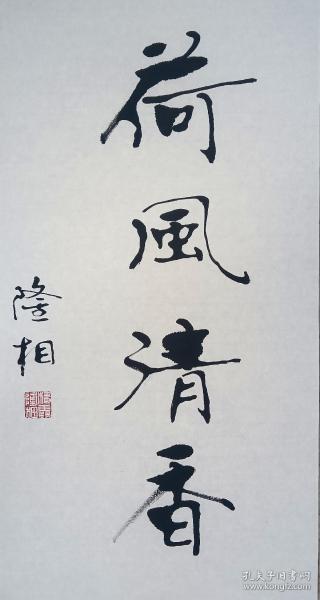 荷風清香
隆相
孔夫子旧书网